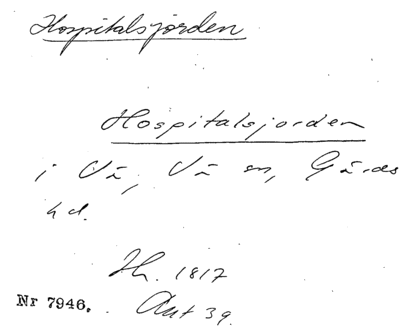 Hospitalsjorden
Hospitalsjorden
i Vä, Vä sn, Gärds
hd.
Jh. 1817
Nr 7946. Akt 39.